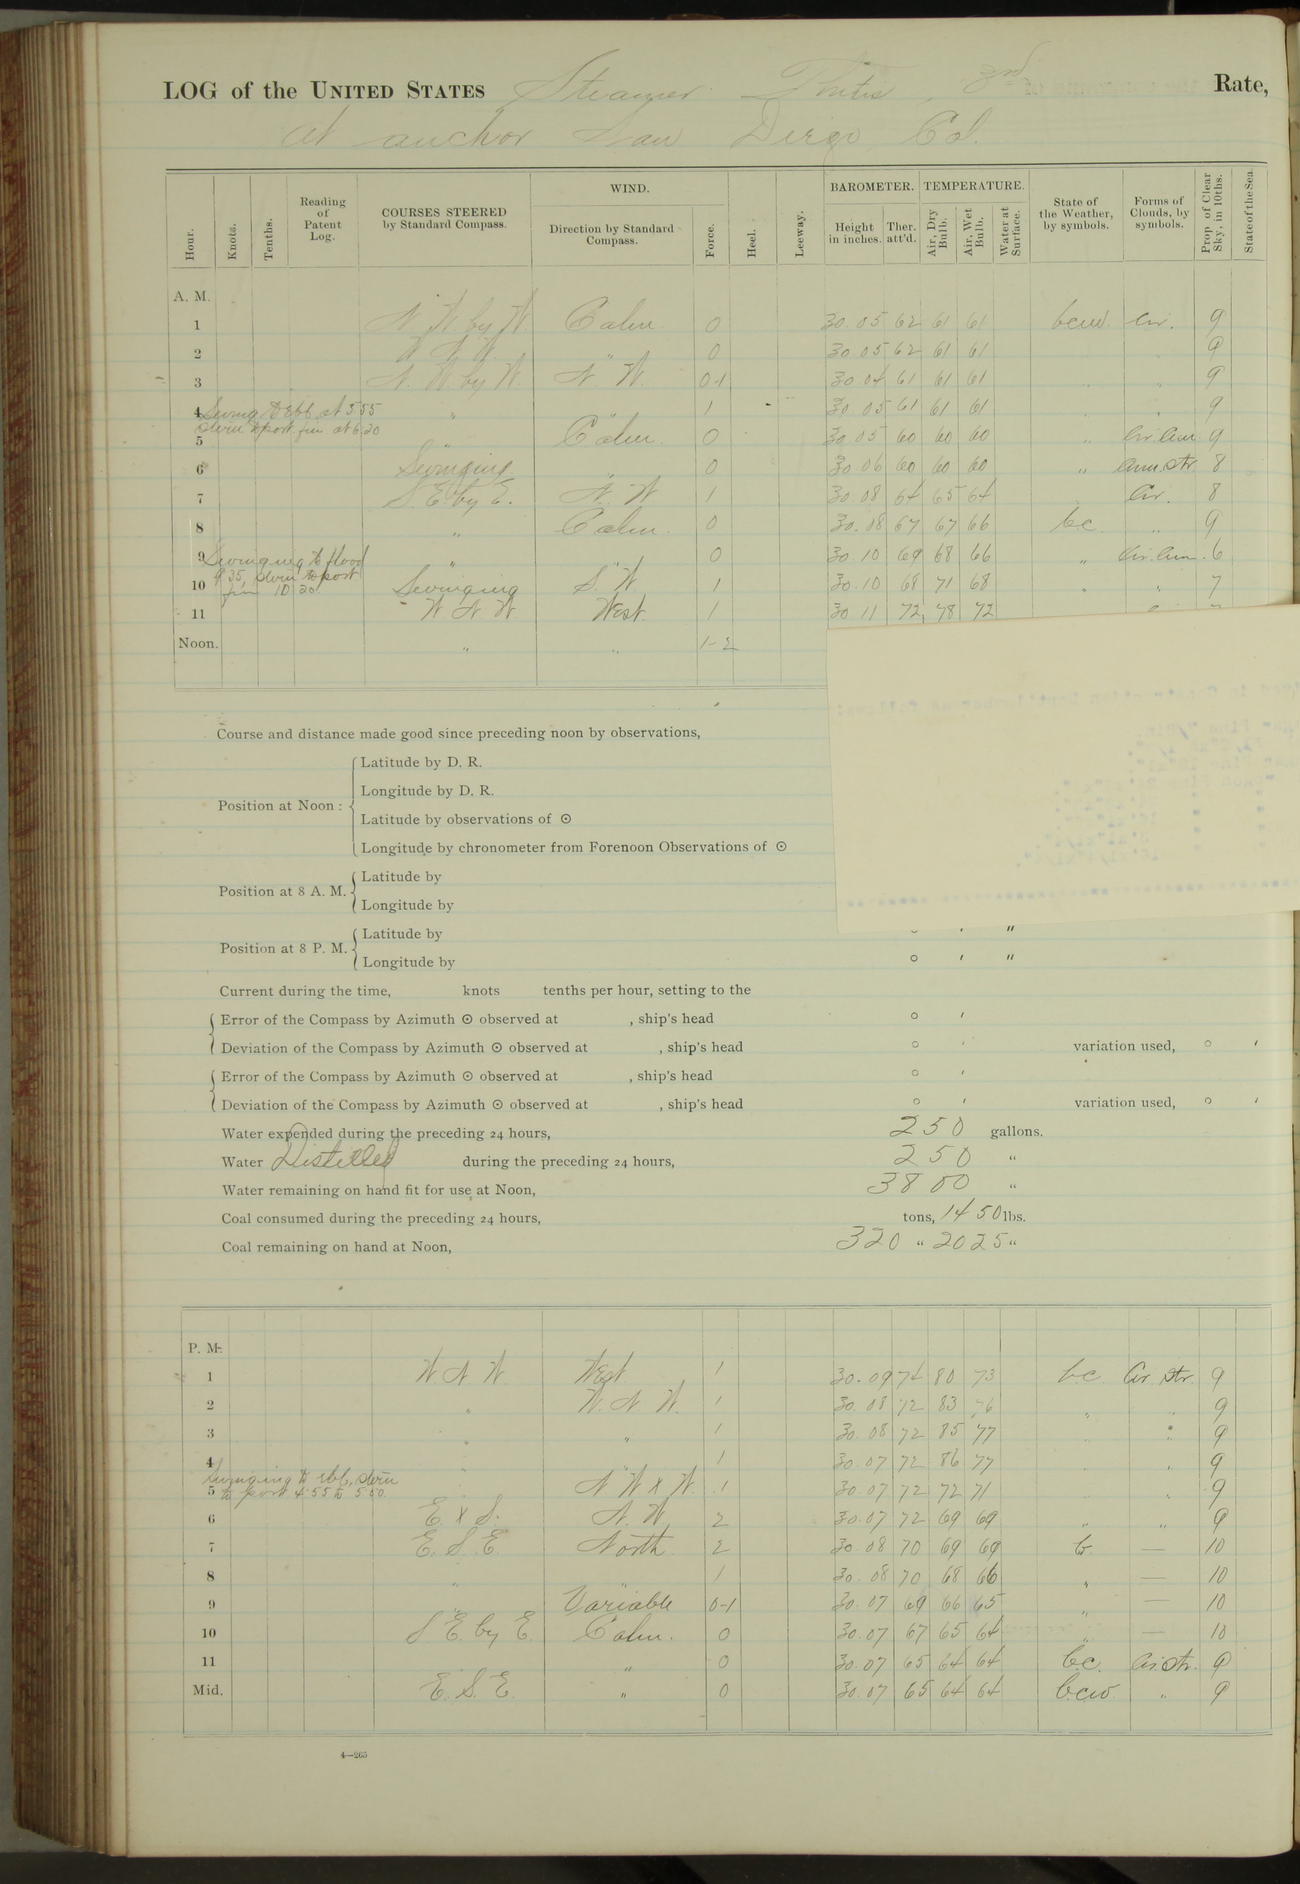 LOG of the UNITED STATES Steamer Thetis, 3rd Rate,
at anchor San Diego Cal.
Hour. Knots. Tenths. Reading of Patent Log. COURSES STEERED by Standard Compass. WIND. Direction by Standard Compass. Force. Heel. Leeway. BAROMETER. Height in inches. Ther. att'd. TEMPERATURE. Air, Dry Bulb. Air, Wet Bulb. Water at Surface. State of the Weather, by symbols. Forms of Clouds, by symbols. Prop. of Clear Sky, in 10ths. State of the Sea.
A. M.
1 N W by W Calm 0 30.05 62 61 61 bcw. Cir. 9
2 W N W " 0 30 05 62 61 61 9
3 N. W. by W. N W. 0-1 30 04 61 61 61 " " 9
4 " " 1 30 05 61 61 61 " " 9
Swing to Ebb at 5 55
stern to port fin at 6.20
5 " Calm. 0 30 05 60 60 60 " Cir. Cum 9
6 Swinging " 0 30 06 60 60 60 " Cum. str. 8
7 S. E. by E. N. W 1 30 08 64 65 64 Cir. 8
8 " Calm. 0 30.08 67 67 66 bc " 9
9 " " 0 30.10 69 68 66 " Cir. Cum. 6
Swinging to flood
9 35, stern to port
fin 10 20
10 Swinging S. W 1 30.10 68 71 68 " " 7
11 W N W West. 1 30 11 72 78 72
Noon. " " 1-2
Course and distance made good since preceding noon by observations,
Position at Noon :
Latitude by D. R.
Longitude by D. R.
Latitude by observations of ☉
Longitude by chronometer from Forenoon Observations of ☉
Position at 8 A. M.
Latitude by
Longitude by
Position at 8 P. M.
Latitude by ° ' "
Longitude by ° ' "
Current during the time, knots tenths per hour, setting to the
Error of the Compass by Azimuth ☉ observed at , ship's head ° '
Deviation of the Compass by Azimuth ☉ observed at , ship's head ° ' variation used, ° '
Error of the Compass by Azimuth ☉ observed at , ship's head ° '
Deviation of the Compass by Azimuth ☉ observed at , ship's head ° ' variation used, ° '
Water expended during the preceding 24 hours, 250 gallons.
Water Distilled during the preceding 24 hours, 250 "
Water remaining on hand fit for use at Noon, 3800 "
Coal consumed during the preceding 24 hours, tons, 1450 lbs.
Coal remaining on hand at Noon, 320 " 2025 "
P. M.
1 W N W. West 1 30.09 74 80 73 b.c. Cir. str. 9
2 " W. N W. 1 30.08 72 83 76 " " 9
3 " " 1 30.08 72 85 77 " 9
4 " 1 30.07 72 86 77 " " 9
Swinging to ebb, stern
to port 4.55 to 5.50.
5 N W x W. 1 30.07 72 72 71 " 9
6 E. x S. N. W. 2 30.07 72 69 69 " " 9
7 E. S. E. North 2 30.08 70 69 69 b. — 10
8 " " 1 30.08 70 68 66 " — 10
9 " Variable 0-1 30.07 69 66 65 " — 10
10 S E. by E. Calm. 0 30.07 67 65 64 " — 10
11 " 0 30.07 65 64 64 b.c. Cir. str. 9
Mid. E. S. E. " 0 30.07 65 64 64 b.c.w. " 9
4—265